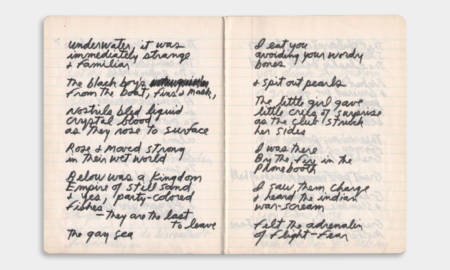 underwater, it was
immediately strange
& familiar
The black boys
From the boat, fins & mask,
Nostrils bled liquid
crystal blood
as they rose to surface
Rose & moved strong
in their wet world
Below was a Kingdom
Empire of still sand
& yes, party-colored
Fishes
— They are the last
To leave
The gay sea
I eat you
avoiding your wordy
bones
& spit out pearls
The little girl gave
little cries of surprise
as the club struck
her sides
I was there
By the fire in the
Phonebooth
I saw them charge
& heard the indian
war-scream
felt the adrenalin
of flight-fear